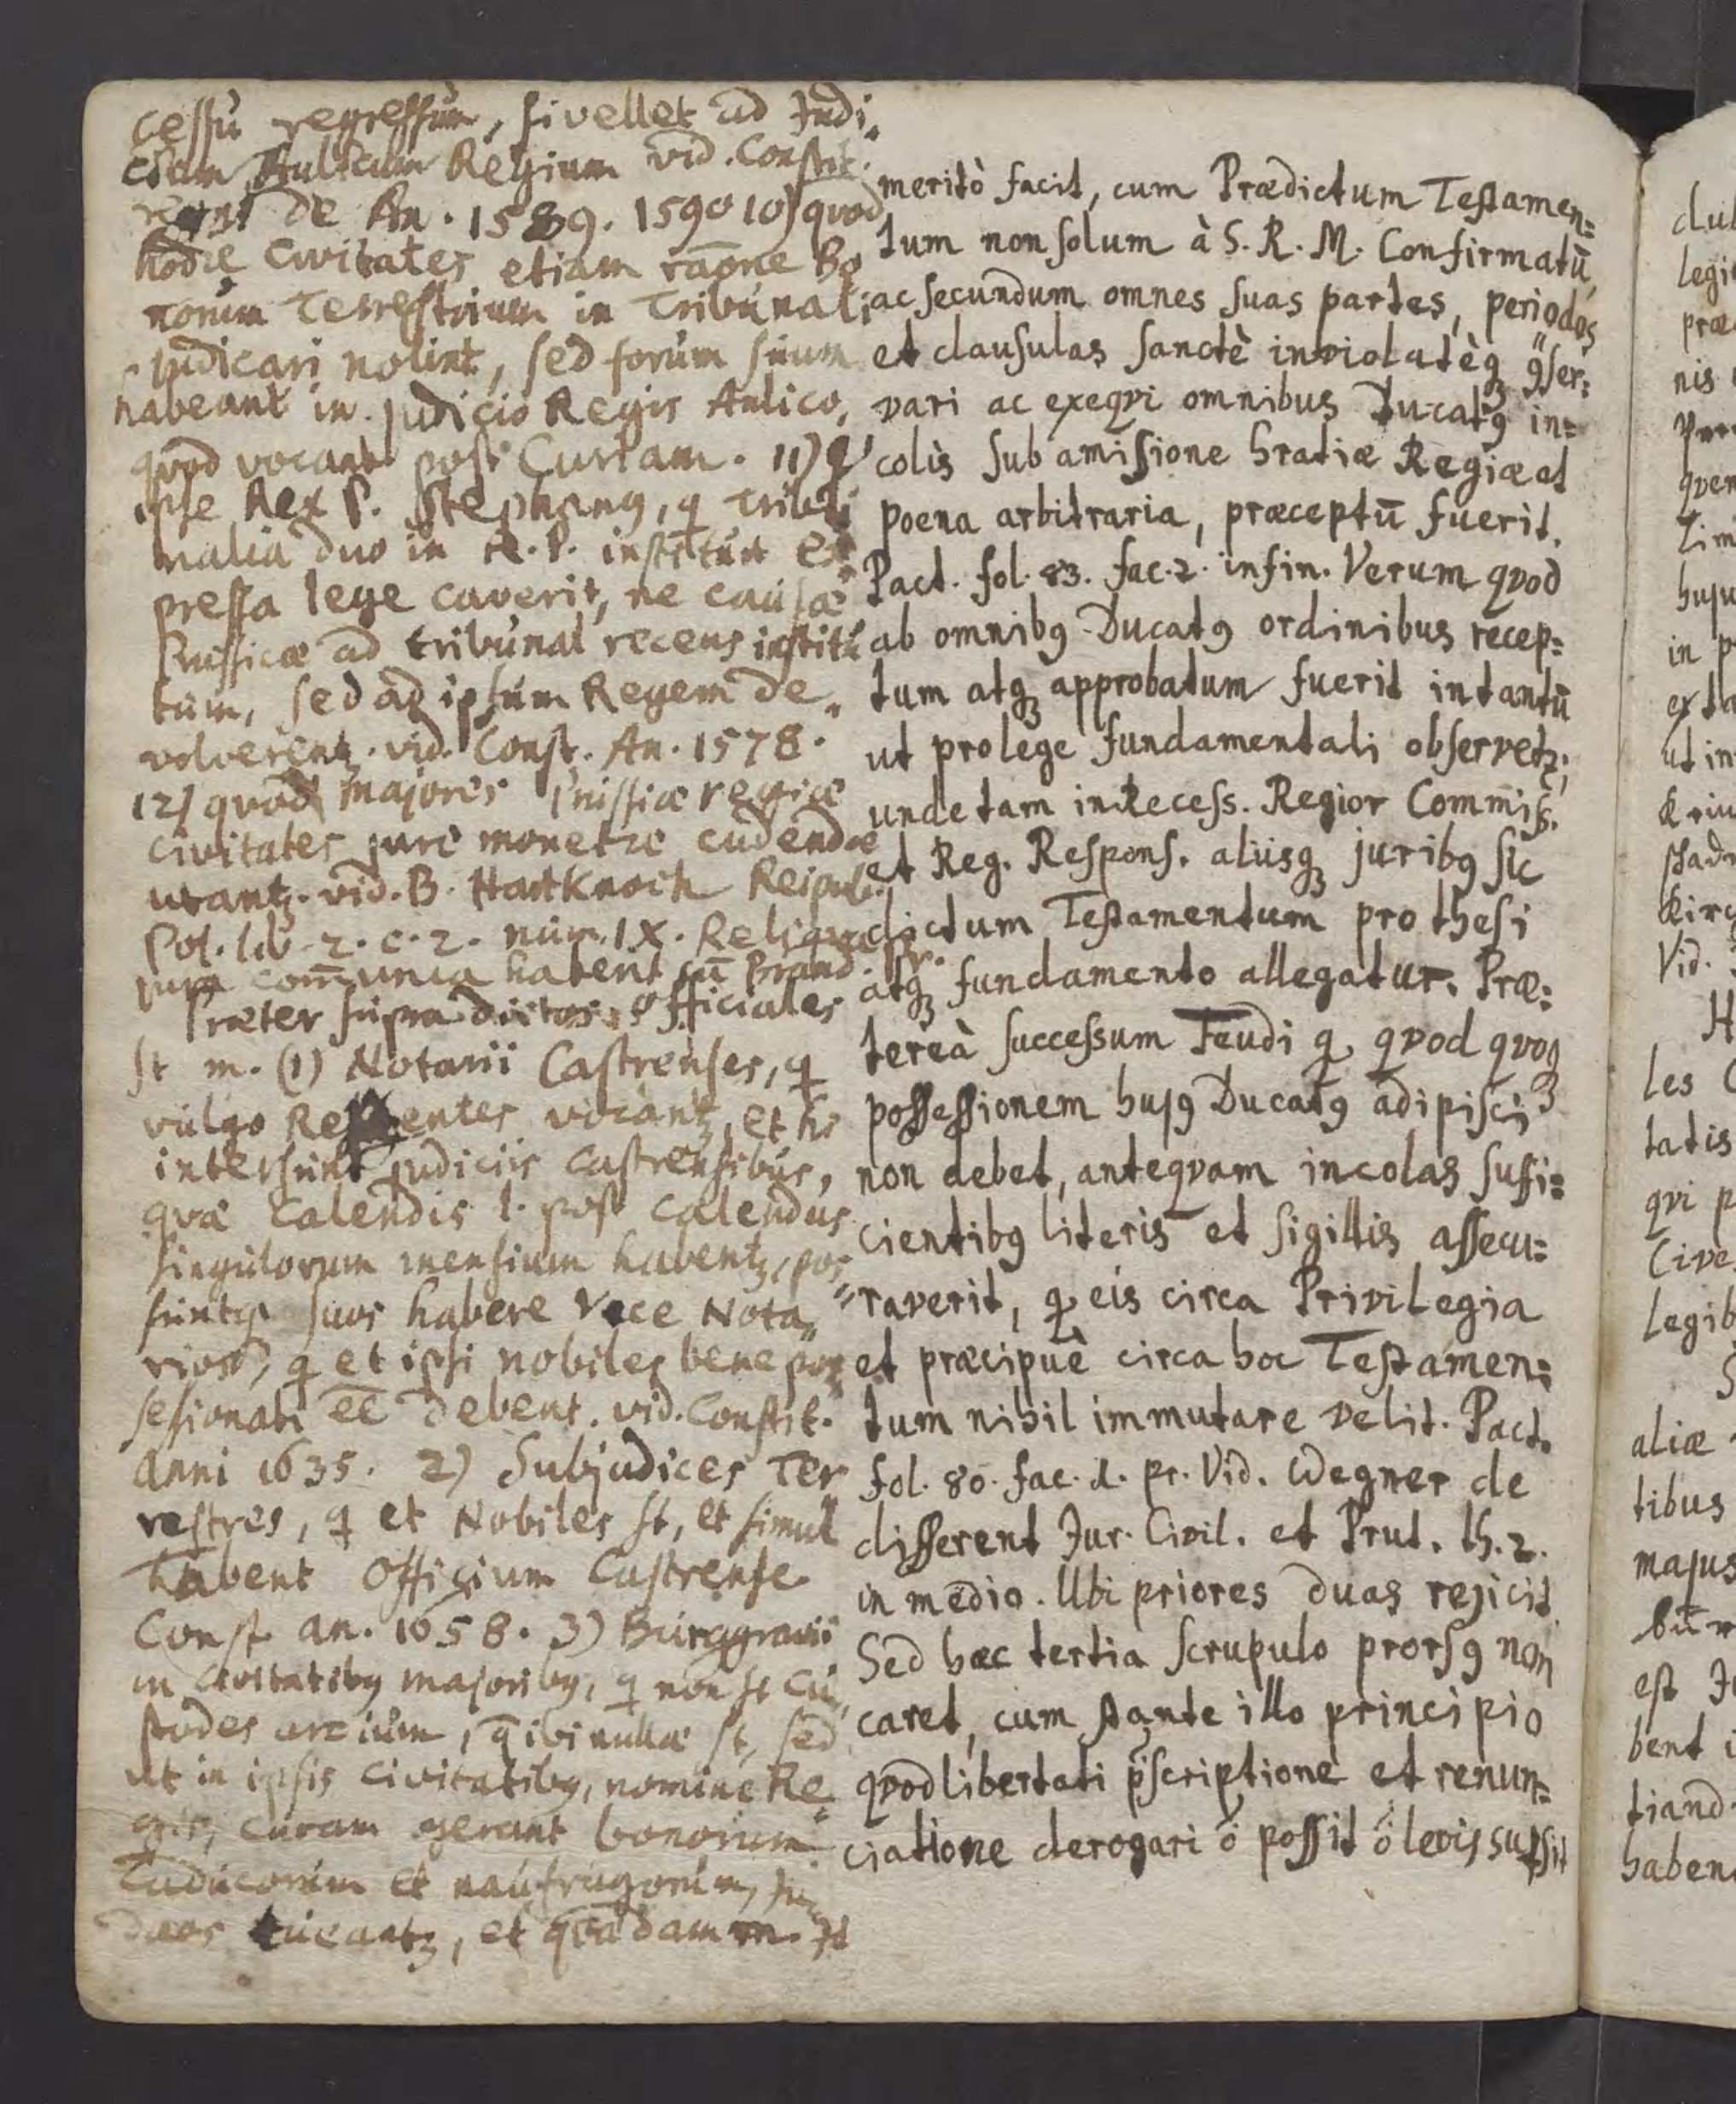 cessu regressum, si vellet ad Judi„
cium Aulicum Regium vid. Constit.
regni de An. 1589. 1590 10) quod
hodie Civitates etiam raōne Bo
norum Terrestrium in Tribunali
judicari nolint, sed forum suum
habeant in judicio Regis Aulico,
quod vocant post Curiam. 11) q
ipse Rex P. Stephang, q Tribu
nalia duo in R. P. instituit ex
pressa lege caverit, ne causæ
Prussicæ ad tribunal recens institu
tum, sed ad ipsum Regem de„
volverentʒ. vid. Const. An. 1578.
12) quod majores Prussiæ regiæ
civitates jure monetæ cudendæ
utantʒ. vid. B. Hartknoch Reipub.
Pol. lib. 2. c. 2. num. IX. Reliqua
jura com̄unia habent cū Brand. Pr.
Præter supra dictos officiales
st m. (1) Notarii Castrenses, q
vulgo vocantʒ, et hi
intersunt judiciis castrensibus,
quæ Calendis l. post calendas
singulorum mensium habentʒ, pos
suntqʒ suos habere Vice Nota„
rios, q et ipsi nobiles bene pos
sesionati ēē debent. vid. Constit.
Anni 1635. 2) Subjudices Ter
restres, q et Nobiles st, et simul
habent Officium Castrense
Const. an. 1658. 3) Burggravii
in civitatibg majoribg, q non st cu
stodes arcium, q̄ ibi nullæ st, sed
ut in ipsis civitatibg, nomine Re„
gis, curam gerant bonorum
Caducorum et naufragorum, Ju
dæos tueantʒ, et quædam m. Jd
meritò facit, cum Prædictum Testamen=
tum non solum à S. R. M. Confirmatū,
ac secundum omnes suas partes, periodos
et clausulas sanctè inviolatèqʒ 9ser=
vari ac exeqvi omnibus Ducat9 in=
colis sub amissione Gratiæ Regiæ et
poena arbitraria, præceptū fuerit.
Pact. fol. 83. fac. 2. in fin. Verum qvod
ab omnib9 Ducat9 ordinibus recep=
tum atqʒ approbatum fuerit in tantū
ut pro lege fundamentali observetʒ;
unde tam in Recess. Regior Com̄iss.
et Reg. Respons. aliisqʒ jurib9 sic
dictum Testamentum pro thesi
atqʒ fundamento allegatur. Præ=
tereà successum Feudi q, qvod qvoqʒ
possessionem huj9 Ducat9 adipisci
non debet, anteqvam incolas suffi=
cientib9 literis et sigillis assecu=
raverit, q, eis circa Privilegia
et præcipuè circa hoc Testamen=
tum nihil immutare velit. Pact.
fol. 80. fac. 1. pr. Vid. Wegner de
different Jur. Civil. et Prut. th. 2.
in medio. Ubi priores duas rejicit.
Sed hæc tertia scrupulo prors9 non
caret, cum stante illo principio
qvod libertati p̄scriptione et renun=
ciatione derogari ō possit ō levis supsit